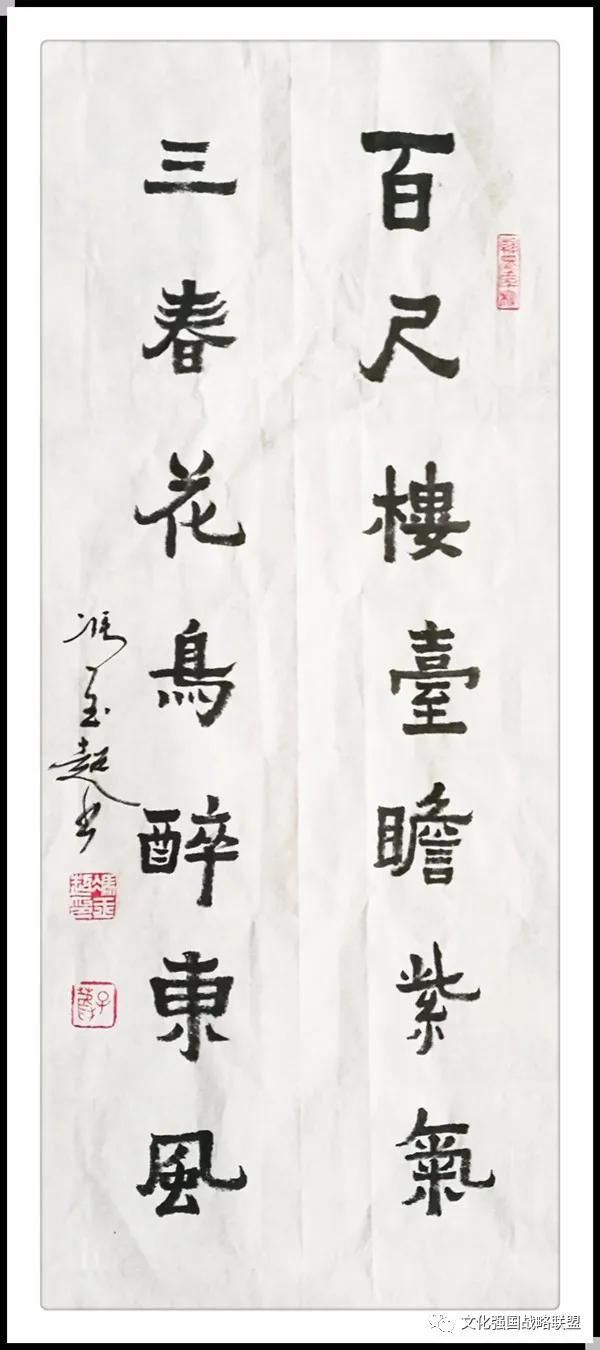 百尺樓臺瞻紫氣
三春花鳥醉東風
馮玉超书
文化强国战略联盟